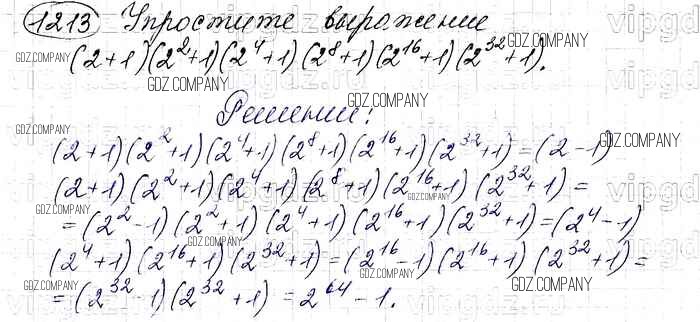 1213 Упростите выражение
(2+1)(2²+1)(2⁴+1)(2⁸+1)(2¹⁶+1)(2³²+1).
Решение:
(2+1)(2²+1)(2⁴+1)(2⁸+1)(2¹⁶+1)(2³²+1)=(2-1)
(2+1)(2²+1)(2⁴+1)(2⁸+1)(2¹⁶+1)(2³²+1)=
=(2²-1)(2²+1)(2⁴+1)(2¹⁶+1)(2³²+1)=(2⁴-1)
(2⁴+1)(2¹⁶+1)(2³²+1)=(2¹⁶-1)(2¹⁶+1)(2³²+1)=
=(2³²-1)(2³²+1)=2⁶⁴-1.
GDZ.COMPANY
GDZ.COMPANY
GDZ.COMPANY
GDZ.COMPANY
GDZ.COMPANY
GDZ.COMPANY
GDZ.COMPANY
GDZ.COMPANY
GDZ.COMPANY
GDZ.COMPANY
GDZ.COMPANY
GDZ.COMPANY